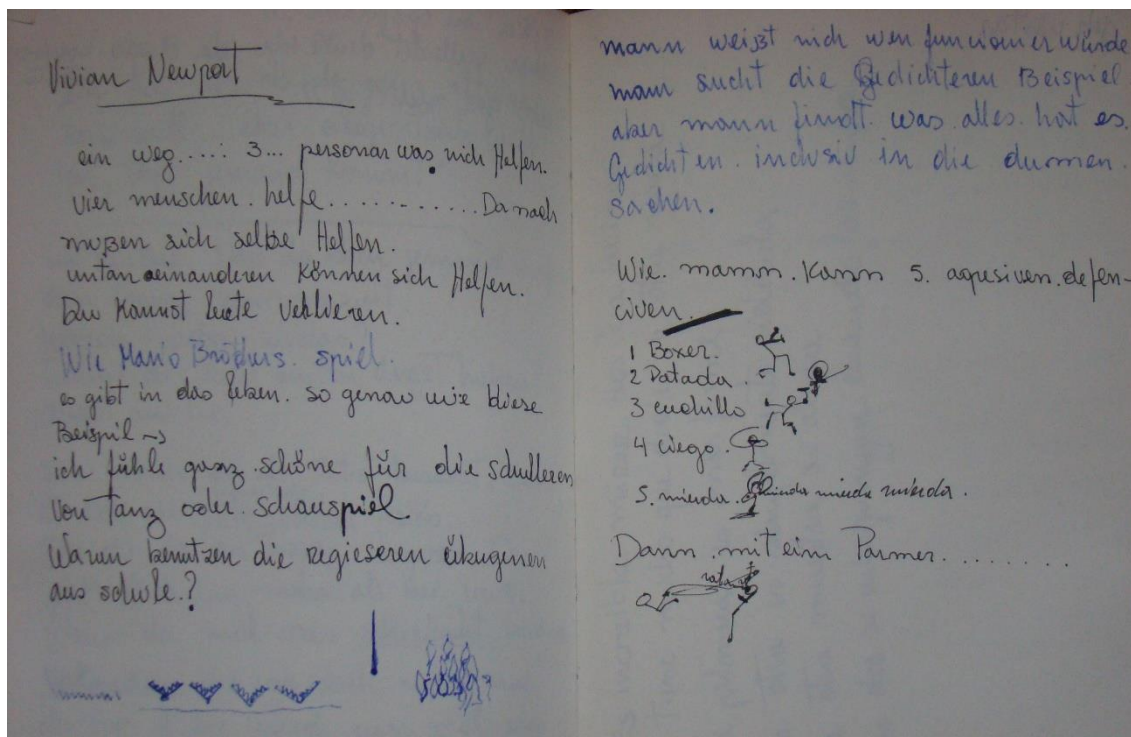 Vivian Newport
ein weg....: 3... personar was nich Helfen.
vier menschen. helfe............. Da nach
mußen sich selbße Helfen.
untan aeinanderen können sich Helfen.
Du kannst leute vehlieren.
Wie Mario Brothers. spiel.
es gibt in das leben. so genau wie diese
Beispiel
ich fühle ganz schöne für die schulleren
von Tanz oder. schauspiel.
Warun benutzen die regieseren übugenen
aus schule.?
mann weißt nich wen funcionier würde
man sucht die Gedichteren Beispiel
aber mann findt. was. alles. hat es.
Gedichten. inclusiv in die dummen.
sachen.
Wie. mamn. Kann 5. agresiven. defen-
civen.
1 Boxer.
2 Patada.
3 cuchillo
4 ciego.
5. mierda. mierda mierda mierda.
Dann. mit ein Parmer........